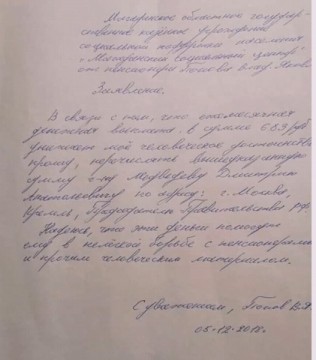 Магаданское областное государ-
ственное казённое учреждение
социальной поддержки населения
"Магаданский социальный центр"
от пенсионера Попова Влад.
Заявление.
В связи с тем, что ежемесячная
денежная выплата в сумме 689 руб
унижает моё человеческое достоинство
прошу, перечислять вышеуказанную
сумму г-ну Медведеву Дмитрию
Анатольевичу по адресу: г. Москва,
Кремль, Председатель Правительства РФ.
Надеюсь, что эти деньги помогут
ему в нелёгкой борьбе с пенсионерами
и прочим человеческим материалом.
С уважением, Попов В.Я.
05-12-2018г.